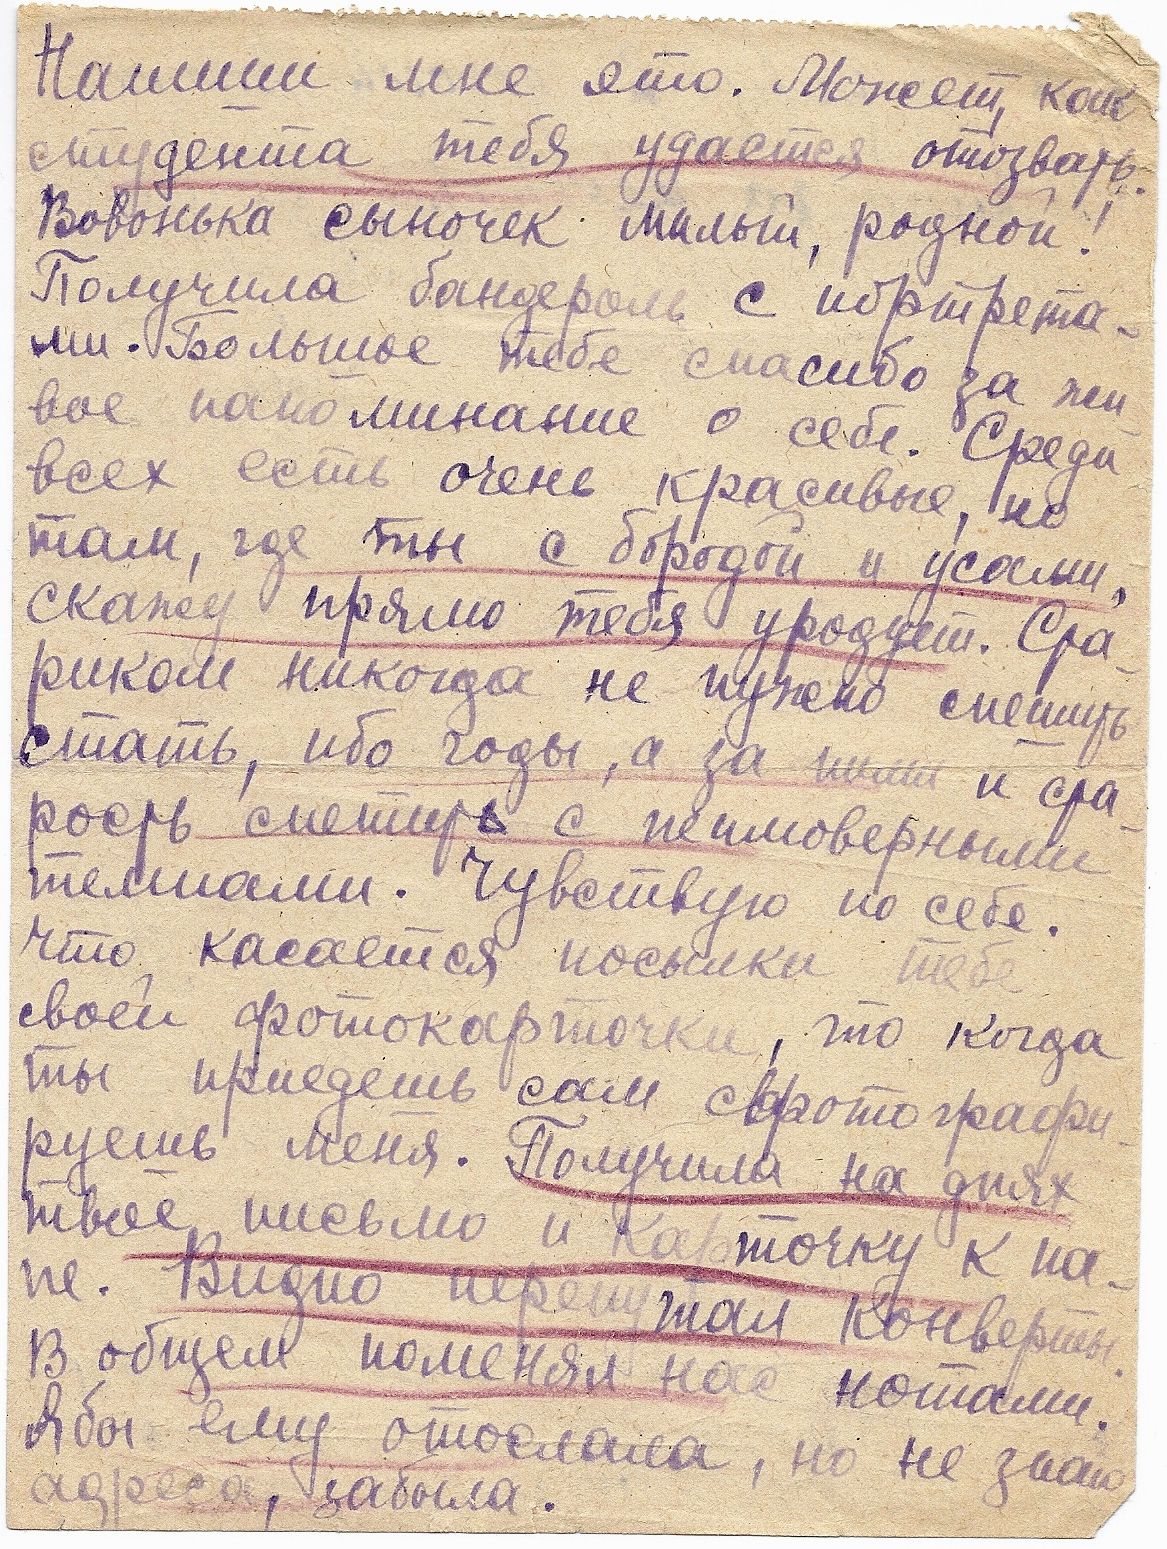 Напиши мне это. Может, как
студента тебя удастся отозвать.
Вовонька сыночек милый, родной!
Получила бандероль с портрета-
ми. Большое тебе спасибо за жи
вое напоминание о себе. Среди
всех есть очень красивые, но
там, где ты с бородой и усами,
скажу прямо тебя уродует. Ста-
риком никогда не нужно спешить
стать, ибо годы, а за ними и ста-
рость спешить с неимоверными
темпами. Чувствую по себе.
Что касается посылки тебе
своей фотокарточки, то когда
ты приедешь сам сфотографи-
руешь меня. Получила на днях
твое письмо и карточку к па-
пе. Видно перепутал конверты.
В общем поменял нас нотами.
Я бы ему отослала, но не знаю
адреса, забыла.